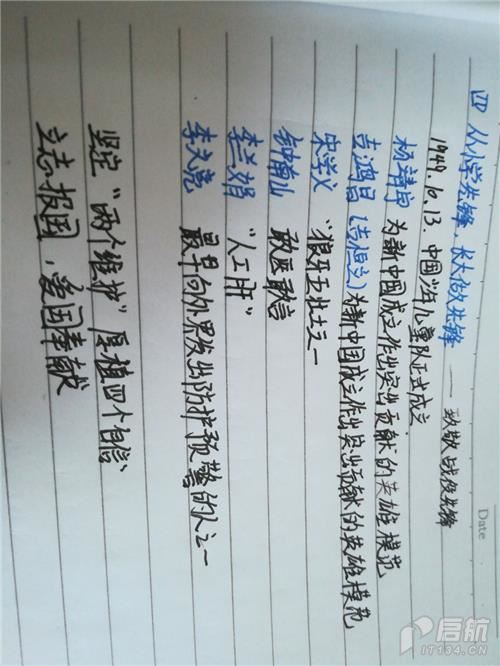 四 从小学先锋，长大做先锋 —— 致敬战役先锋
1949.10.13. 中国少年儿童队正式成立
杨靖宇 为新中国成立作出突出贡献的英雄模范
吉鸿昌（吉恒立）为新中国成立作出突出贡献的英雄模范
宋学义 "狼牙五壮士"之一
钟南山 敢医敢言
李兰娟 "人工肝"
李文亮 最早向外界发出防护预警的人之一
坚定"两个维护"厚植四个自信、
立志报国，爱国奉献
Date
启航
IT134.CN